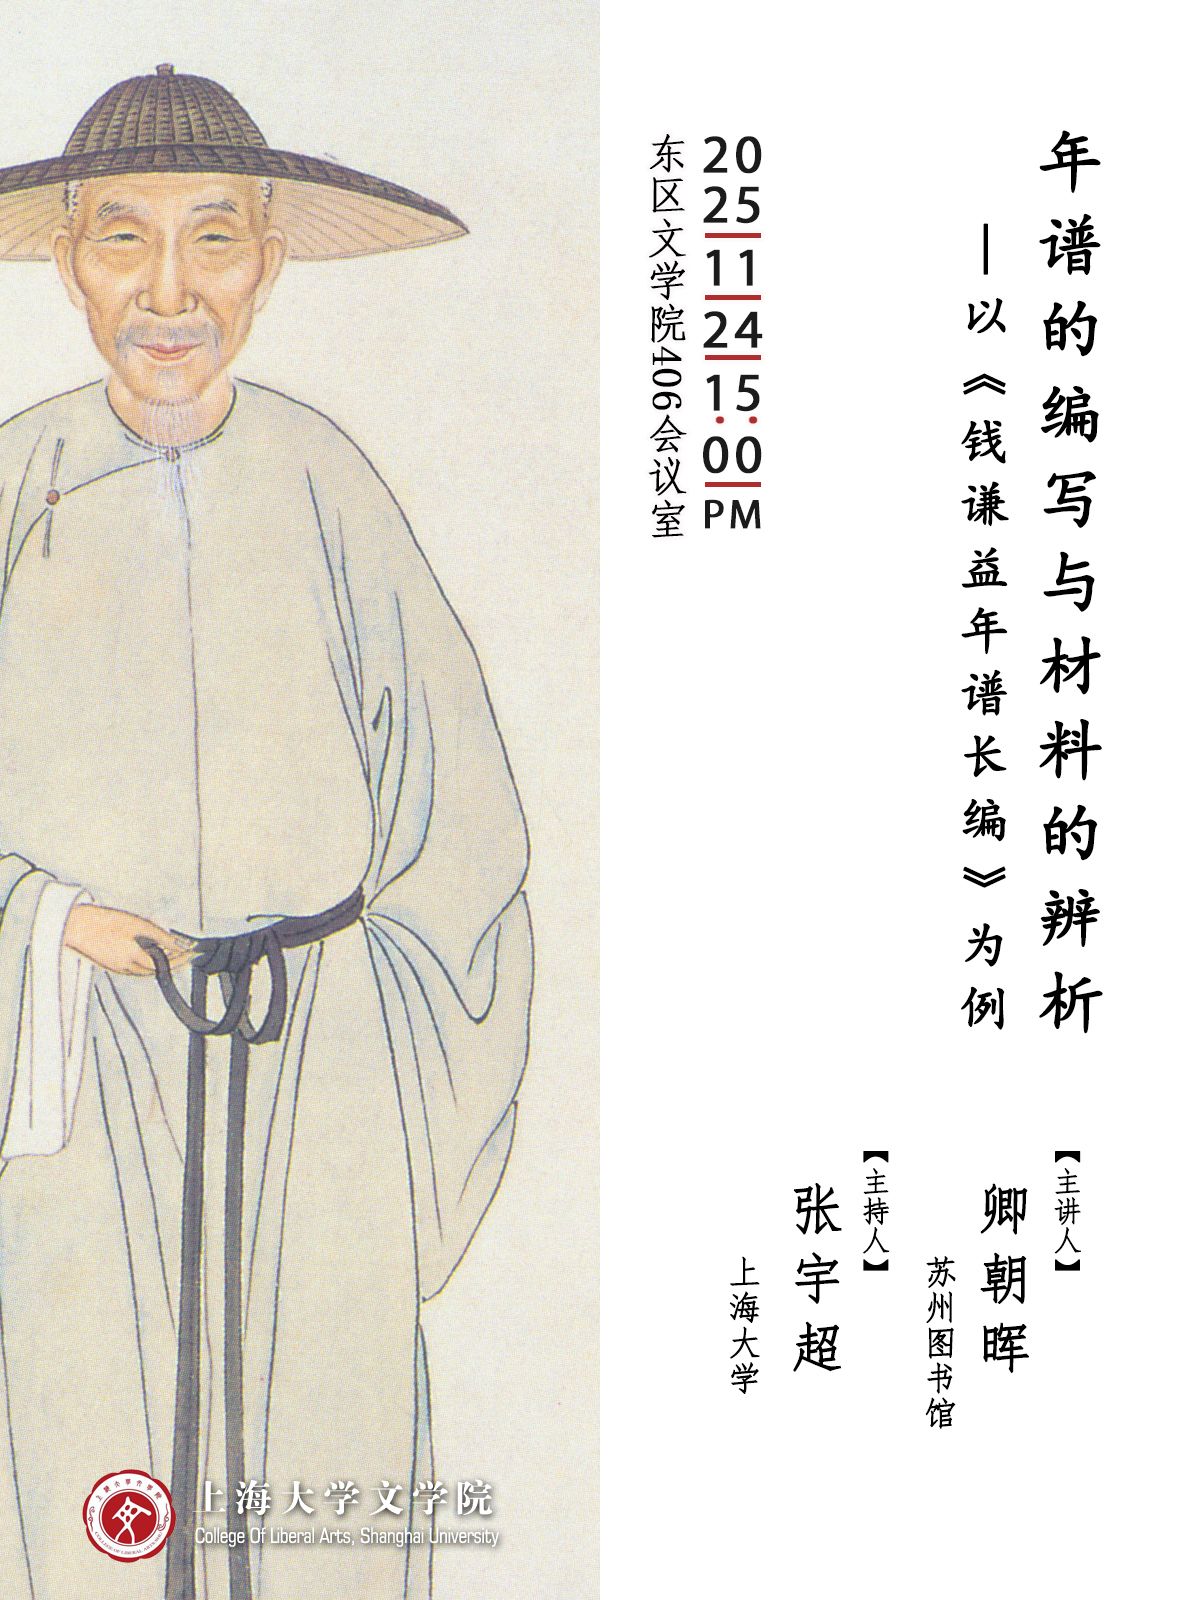 年谱的编写与材料的辨析
—以《钱谦益年谱长编》为例
20
25
11
24
15
:
00
PM
东区文学院406会议室
【主讲人】
卿朝晖
苏州图书馆
【主持人】
张宇超
上海大学
上海大学文学院
College Of Liberal Arts, Shanghai University